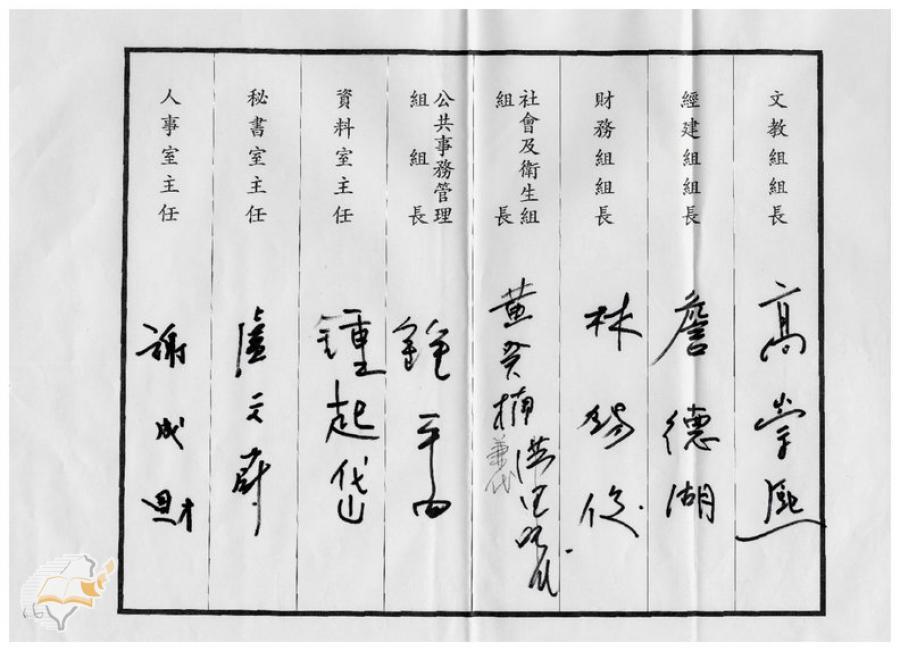 文教組組長
高崇熙
經建組組長
詹德湖
財務組組長
林錫俊
社會及衛生組
組長
黃癸楠
兼代
公共事務管理
組組長
鍾
資料室主任
鍾起岱
秘書室主任
人事室主任
謝成